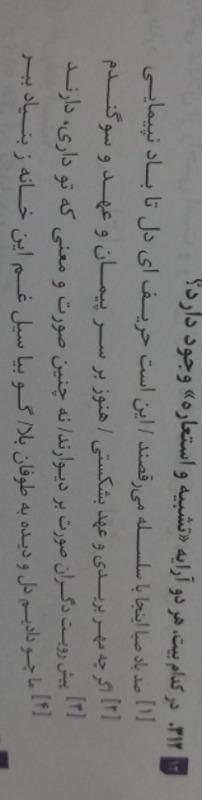 ۳۱۲. در کدام بیت، هر دو آرایه «تشبیه و استعاره» وجود دارد؟
[۱] صد باد صبا اینجا با سلسله می‌رقصند / این است حریف ای دل تا باد نپیمایی
[۲] اگر چه مهر بریدی و عهد بشکستی / هنوز بر سر پیمان و عهد و سوگندم
[۳] پیش رویت دگران صورت بر دیوارند / نه چنین صورت و معنی که تو داری، دارند
[۴] ما چو دادیم دل و دیده به طوفان بلا / گو بیا سیل غم این خانه ز بنیاد ببر